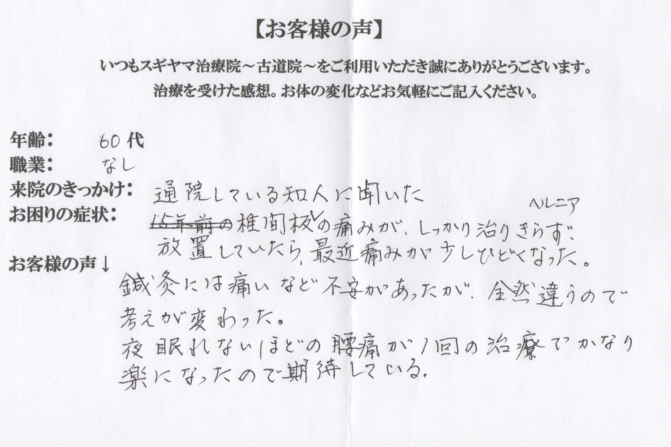 【お客様の声】
いつもスギヤマ治療院～古道院～をご利用いただき誠にありがとうございます。
治療を受けた感想。お体の変化などお気軽にご記入ください。
年齢： 60代
職業： なし
来院のきっかけ： 通院している知人に聞いた
ヘルニア
お困りの症状： 15年前の椎間板の痛みが、しっかり治りきらず、
放置していたら、最近痛みが少しひどくなった。
お客様の声↓
鍼灸には痛いなど不安があったが、全然違うので
考えが変わった。
夜眠れないほどの腰痛が1回の治療でかなり
楽になったので期待している。